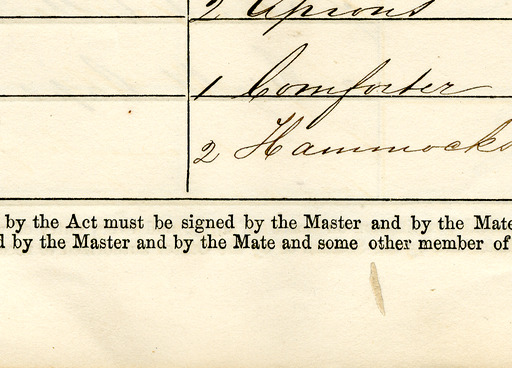 2 Aprons
1 Comforter
2 Hammocks
by the Act must be signed by the Master and by the Mate
d by the Master and by the Mate and some other member of